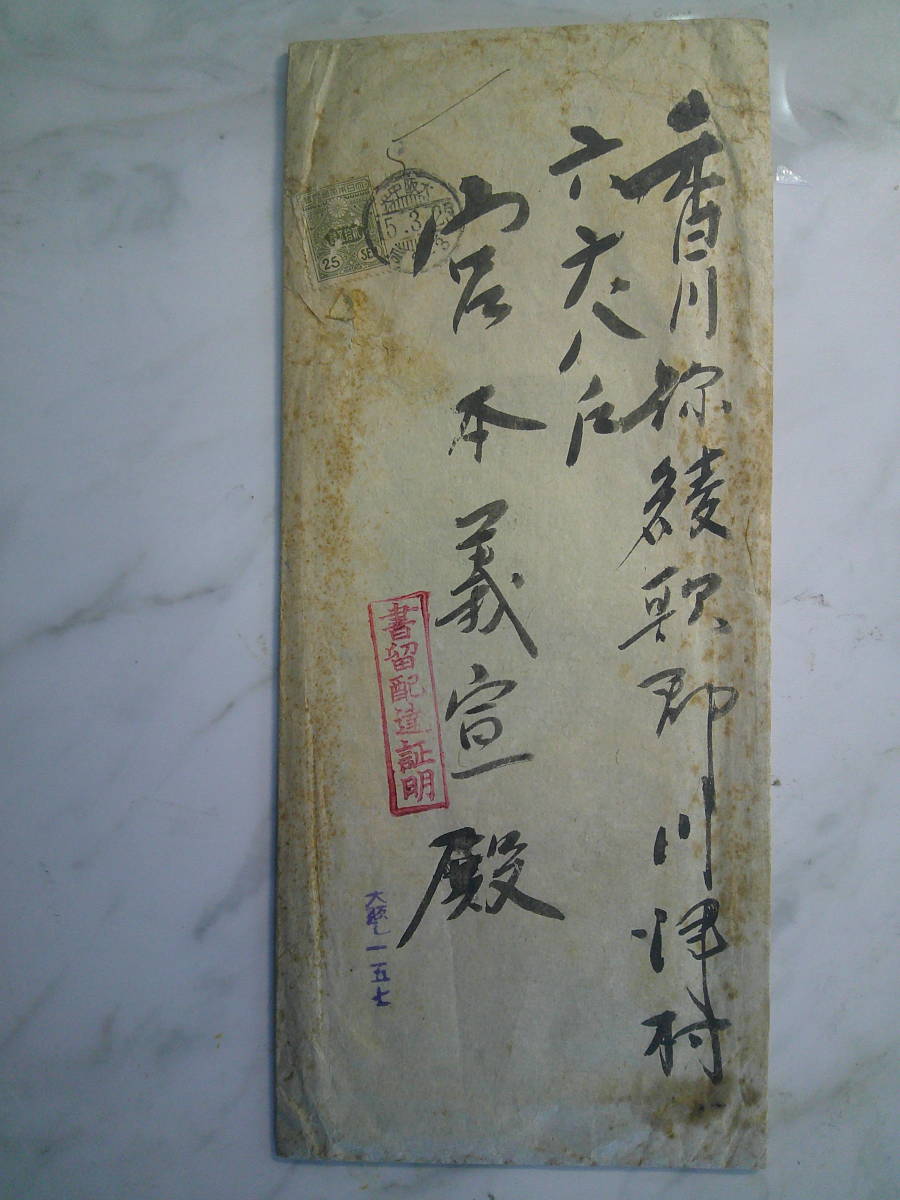 香川縣綾歌郡川津村
六六八戸
宮本義宣殿
書留配達証明
一五七
25 SEN
5.3.25